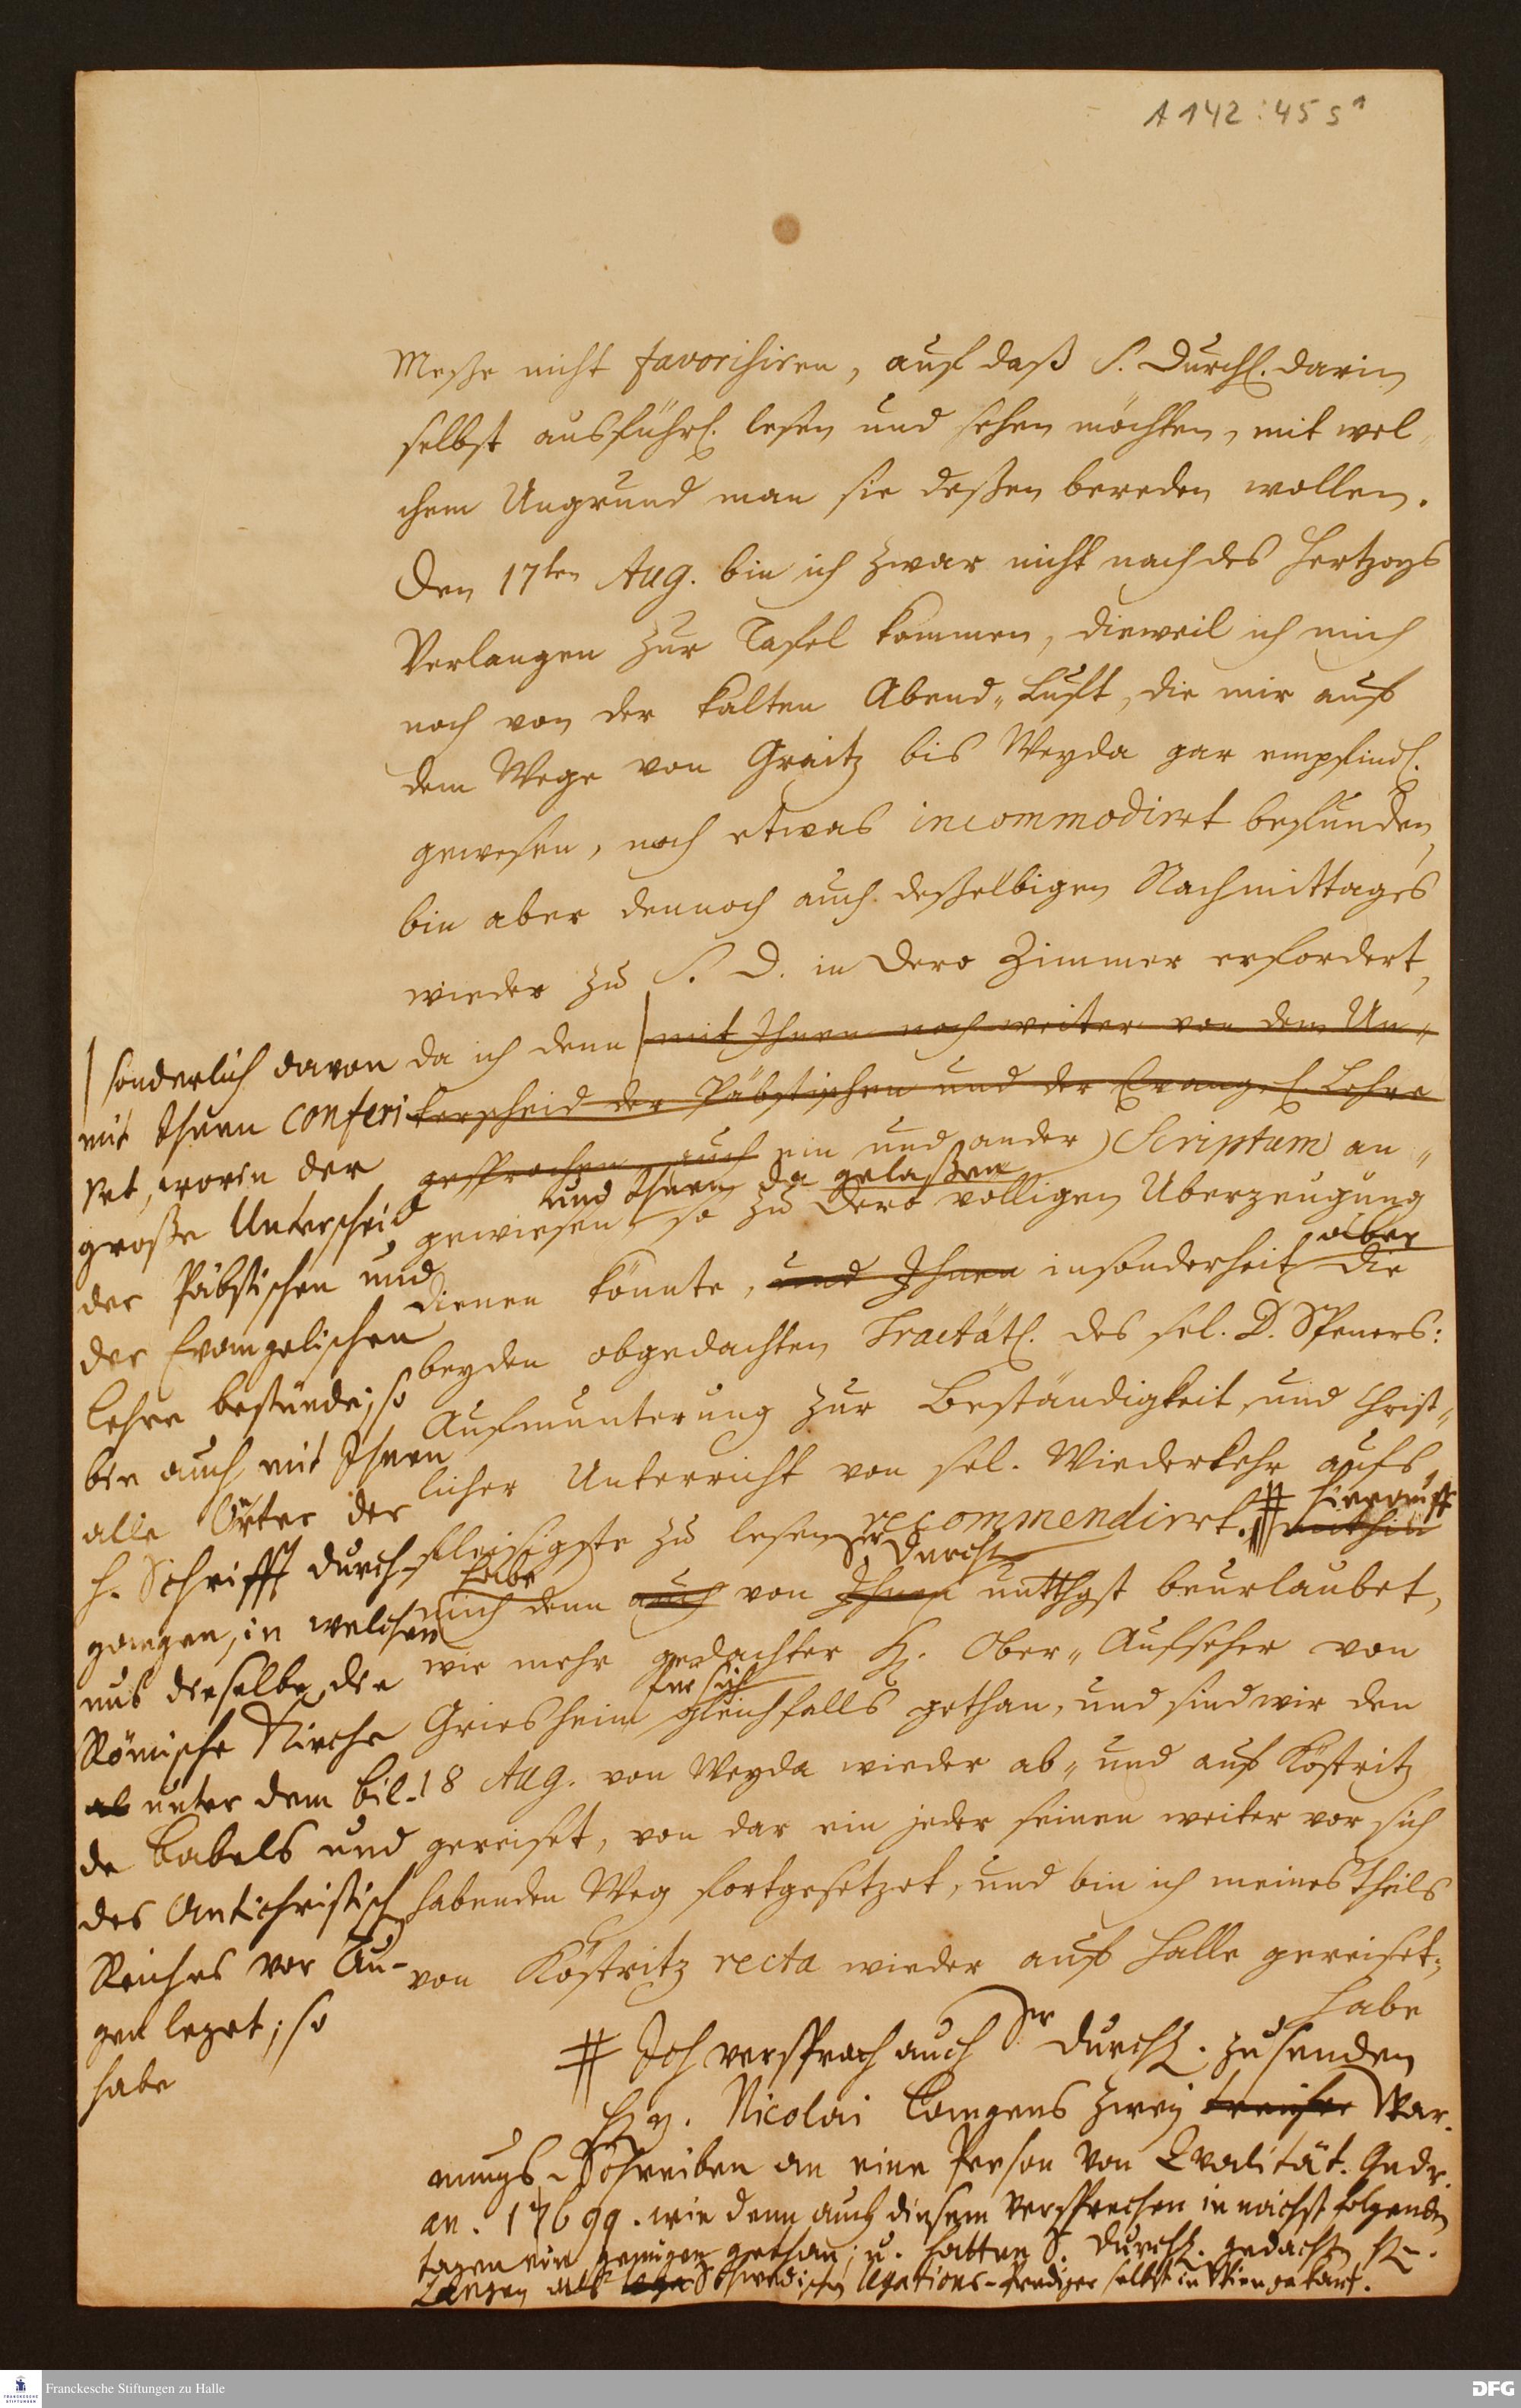 A 142 : 45 s¹
Meße nicht favorisiren, auf daß S. Durchl. darin
selbst ausführl. lesen und sehen möchten, mit wel„
chem Ungrund man sie deßen bereden wollen.
Den 17ten Aug. bin ich zwar nicht nach des Hertzogs
Verlangen zur Tafel kommen, dieweil ich mich
noch von der kalten Abend„Lufft, die mir auf
dem Wege von Graitz bis Weyda gar empfindl.
gewesen, noch etwas incommodiret befunden,
bin aber dennoch auch deßelbigen Nachmittages
wieder zu S. D. in Dero Zimmer erfordert,
da ich denn mit Ihnen noch weiter von dem Un„
terscheid der Päbstischen und der Evangel. Lehre
gesprochen auch ein und ander Scriptum an„
und Ihnen da gelaßen
gewiesen, so zu Dero völligen Uberzeugung
aber
dienen könnte, und Ihnen insonderheit die
beyden obgedachten Tractätl. des sel. D. Speners:
Aufmunterung zur Beständigkeit, und Christ„
licher Unterricht von sel. Wiederkehr aufs
fleißigste zu lesen recommendiret. # hierauff
mithin
habe
Sr Durchl.
mich denn auch von Ihnen untthgst beurlaubet,
wie mehr gedachter H. Ober„Aufseher von
für sich
Griesheim gleichfalls gethan, und sind wir den
18 Aug. von Weyda wieder ab„ und auf Köstritz
gereiset, von dar ein jeder seinen weiter vor sich
habenden Weg fortgesetzet, und bin ich meines Theils
von Köstritz recta wieder auf Halle gereiset;
habe
sonderlich davon
mit Ihnen conferi
ret, worin der
große Unterscheid
der Päbstischen und
der Evangelischen
Lehre bestünde; so
bin auch mit Ihnen
alle Örter der
H. Schrifft durch
gangen, in welchen
uns dieselbe die
Römische Kirche
unter dem Bil-
de Babels und
des Antichristisch
Reiches vor Au-
gen leget; so
habe
# Ich versprach auch Sr Durchl. zu senden
Hn. Nicolai Langens zwey War-
nungs-Schreiben an eine Person von Qvalität. Gedr.
an. 1699. wie denn auch diesem Versprechen in nächst folgenden
tagen ein genügen gethan; u. hatten S. Durchl. gedacht. H.
Langen als Schwedischen Legations-Prediger selbst in Wien gekant.
Franckesche Stiftungen zu Halle
FRANCKESCHE
STIFTUNGEN
DFG